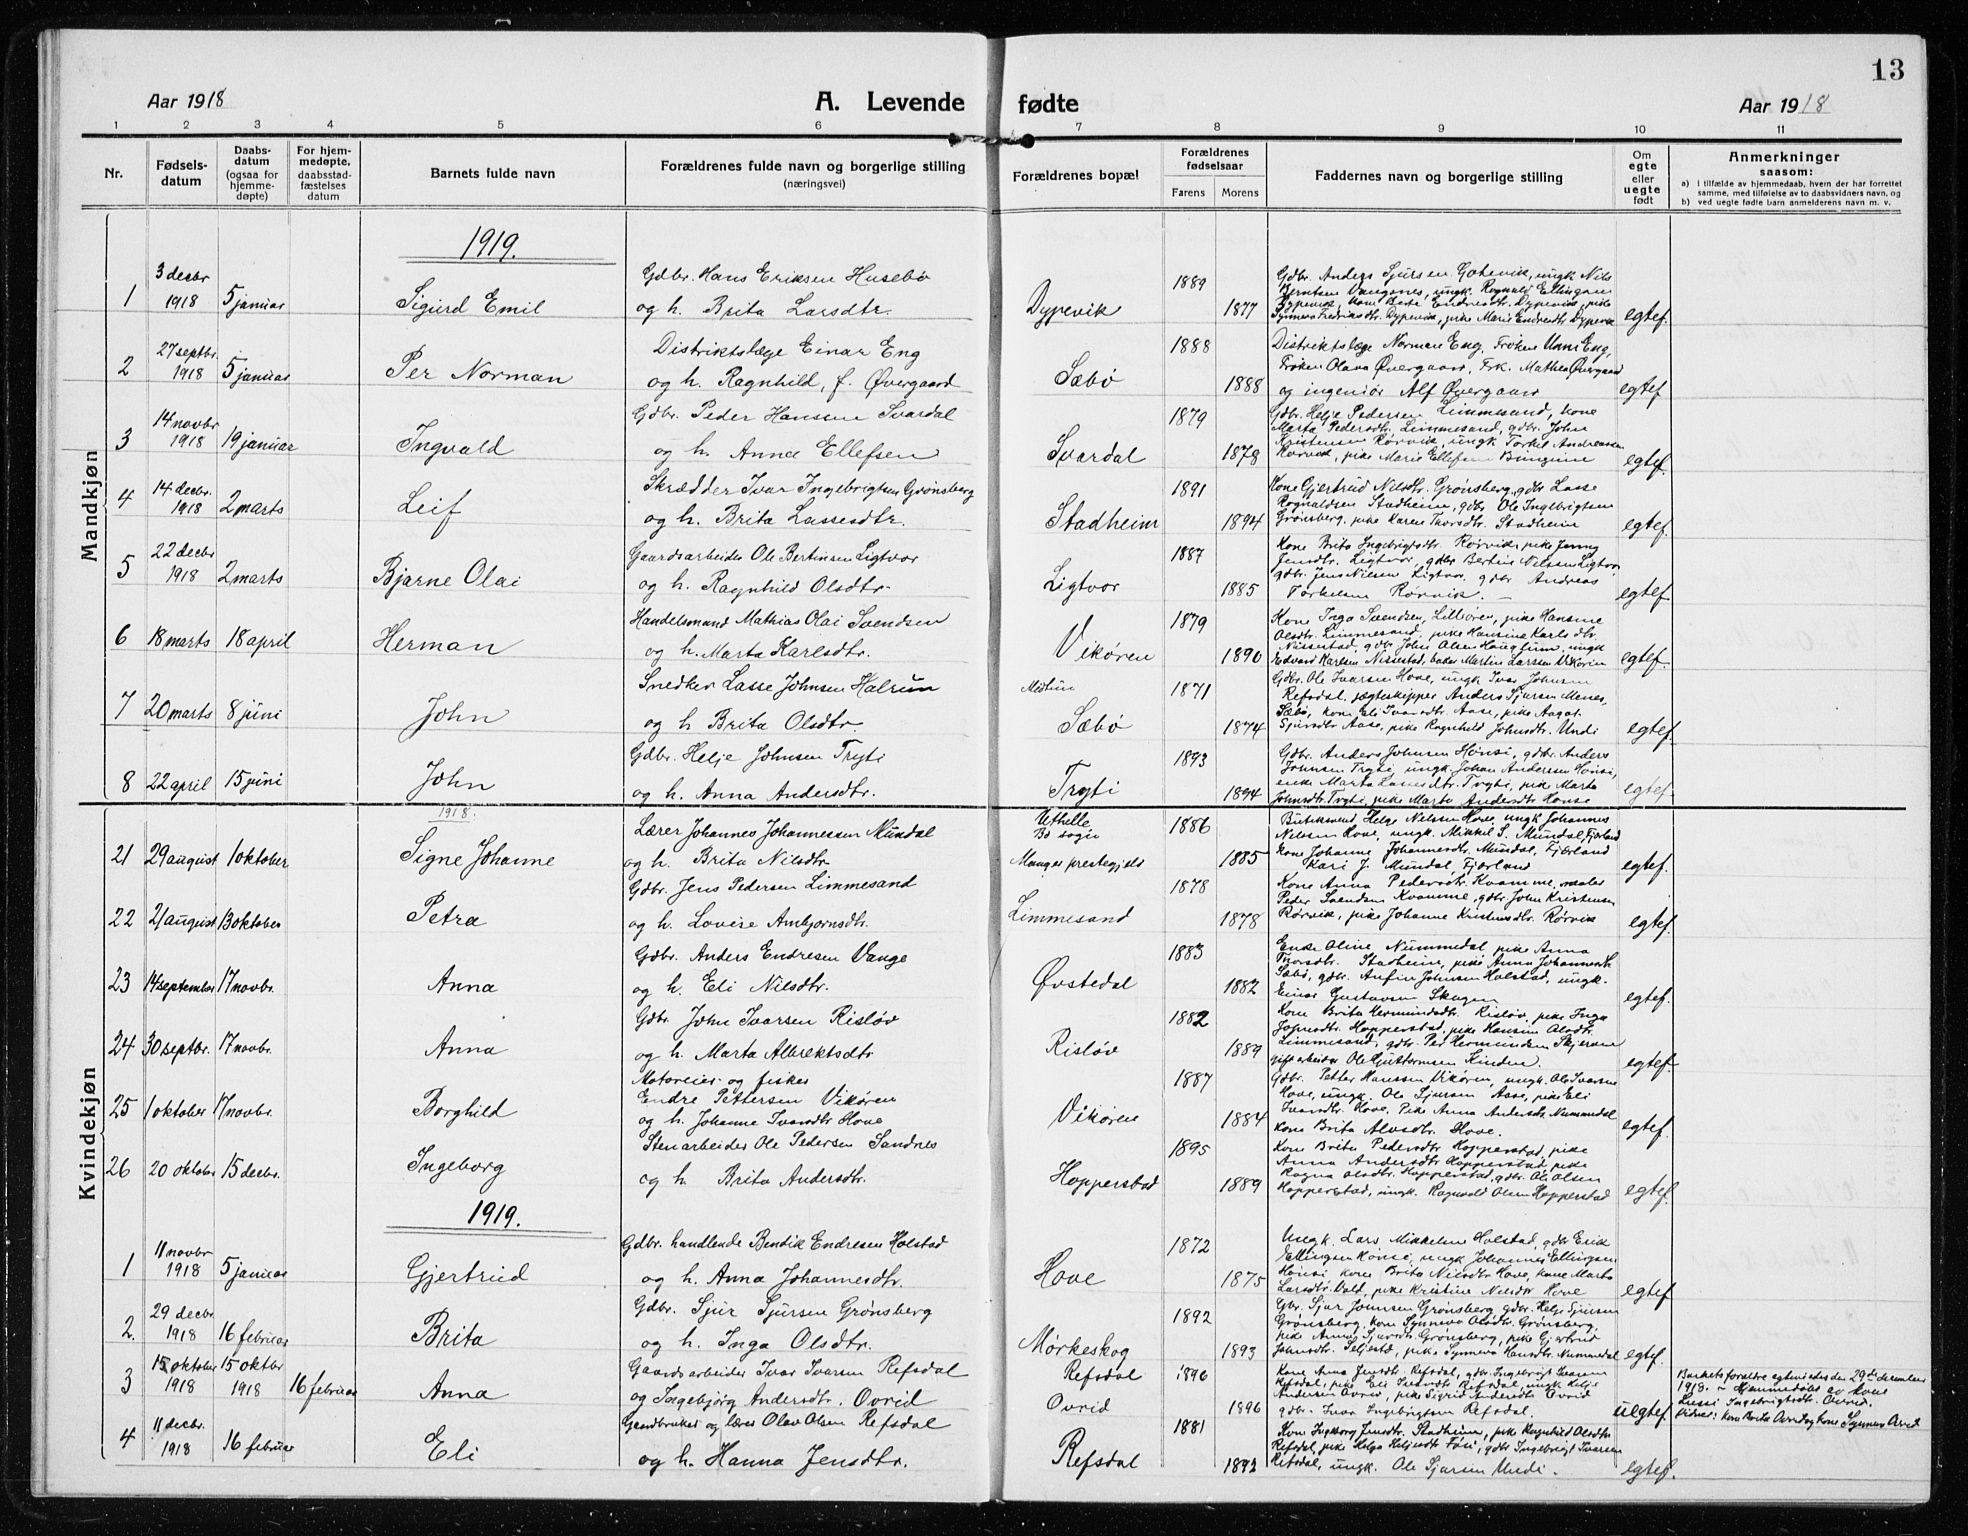 13
Aar 1918
A. Levende fødte
Aar 1918
1 2 3 4 5 6 7 8 9 10 11
Nr.
Fødsels-
datum
Daabs-
datum
(ogsaa for
hjemme-
døpte)
For hjem-
medøpte,
daabsstad-
fæstelses
datum
Barnets fulde navn
Forældrenes fulde navn og borgerlige stilling
(næringsvei)
Forældrenes bopæl
Forældrenes
fødselsaar
Farens Morens
Faddernes navn og borgerlige stilling
Om
egte
eller
uegte
født
Anmerkninger
saasom:
a) I tilfælde av hjemmedaab, hvem der har forrettet
samme, med tilføielse av to daabsvidners navn, og
b) ved uegte fødte barn anmelderens navn m. v.
Mandkjøn
1919.
1 3 decbr 1918 5 januar Sigurd Emil
Gdbr. Hans Eriksen Husebø
og h. Brita Larsdtr.
Dypevik 1889 1877
Gdbr. Anders Sjursen Gotevik, ungk Nils
Berntsen Vangsnes, ungk. Rognald Ellingsen
Dypevik, kone Berte Endresdtr. Dypevik, pike
Synneva Fredriksdtr. Dypevik, pike Marie Endresdtr Dypevik
egtef.
2 27 septbr. 1918 5 januar Per Norman
Distriktslæge Einar Eng
og h. Ragnhild, f. Øvergaard
Sæbø 1888 1888
Distriktslæge Norman Eng, Frøken Unni Eng,
Frøken Olava Øvergaar, Frk. Mathea Øvergaard
og ingeniør Alf Øvergaar
egtef
3 14 novbr 1918 19 januar Ingvald
Gdbr. Peder Hansen Svardal
og h. Anna Ellefsen
Svardal 1879 1878
Gdbr. Helje Pedersen Limmesand, kone
Marta Pedersdtr. Limmesand, gdbr. John
Kristensen Rørvik, ungk Torkel Andreassen
Rørvik, pike Marie Ellefsen
egtef.
4 14 decbr. 1918 2 marts Leif
Skrædder Ivar Ingebrigtsen Grønsberg
og h. Brita Lassesdtr.
Stadheim 1891 1894
Kone Gjertrud Nilsdtr. Grønsberg, gdbr Lasse
Rognaldsen Stadheim, gdbr Ole Ingebrigtsen
Grønsberg, pike Karen Thorsdtr. Stadheim
egtef.
5 22 decbr 1918 2 marts Bjarne Olai
Gaardsarbeider Ole Bertinsen Ligtvor
og h. Ragnhild Olsdtr.
Ligtvor 1887 1885
Kone Brita Ingebrigtsdtr. Rørvik, pike Jenny
Jensdtr. Ligtvor, gdbr Bertin Nilsen Ligtvor,
gdbr. Jens Nilsen Ligtvor, gdbr Andreas
Torkelsen Rørvik. –
egtef.
6 18 marts 18 april Herman
Handelsmand Mathias Olai Svendsen
og h. Marta Karlsdtr.
Vikøren 1879 1890
Kone Inga Svendsen, Lilliøren, pike Hansine
Olsdtr. Limmesand, pike Hansine Karlsdtr.
Nissestad, gdbr John Olsen Hauglum, ungk
Edvard Karlsen Nissestad, baker Martin Larssen Vikøren
egtef.
7 20 marts 8 juni John
Snedker Lasse Johnsen Halrun
og h Brita Olsdtr.
Midtun
Sæbø 1871 1874
Gdbr. Ole Ivarsen Hove, ungk Ivar Johnsen
Refsdal, jægteskipper Anders Sjursen Menes,
Sæbø, kone Eli Ivarsdtr. Aase, pike Aagot
Sjursdtr Aase, pike Ragnhild Johnsdtr. Undi
egtef.
8 22 april 15 juni John
Gdbr. Helje Johnsen Tryti
og h. Anna Andersdtr.
Tryti 1893 1894
Gdbr. Anders Johnsen Hønsi, gdbr. Anders
Johnsen Tryti, ungk. Johan Andersen Hønsi,
enke Marta Larsdtr. Tryti, pike Marta
Johnsdtr. Tryti, pike Marta Andersdtr Hønse
egtef.
Kvindekjøn
1918.
21 29 august 1 oktober Signe Johanne
Lærer Johannes Johannessen Mundal
og h. Brita Nilsdtr.
Uthelle
Bø sogn
Manger prestegjeld 1886 1885
Butikmand Helge Nilsen Hove, ungk Johannes
Nilsen Hove, ungk. Mikkel S. Mundal, Fjærland
Kone Johanne Johannesdtr. Mundal, Fjærland
Kari J. Mundal, Fjærland
egtef.
22 21 august 13 oktober Petra
Gdbr. Jens Pedersen Limmesand
og h. Lovise Ambjørnsdtr.
Limmesand 1878 1878
Kone Anna Pedersdtr. Kvamme, maler
Peder Svendsen Kvamme, gdbr. John Kristensen
Rørvik, pike Johanne Kristensdtr. Rørvik
egtef.
23 14 september 17 novbr. Anna
Gdbr. Anders Endresen Vange
og h. Eli Nilsdtr.
Øvstedal 1883 1882
Enke Oline Nummedal, pike Anna
Thorsdtr. Stadheim, pike Anna Johannesdtr
Sæbø, gdbr. Anfin Johnsen Holstad, ungk.
Einar Gustavsen Skagen
egtef.
24 30 septbr. 17 novbr. Anna
Gdbr. John Ivarsen Risløv
og h. Marta Albrektsdtr
Risløv 1882 1889
Kone Brita Hermundsdtr. Risløv, pike Inga
Johnsdtr. Hopperstad, pike Hansine Olsdtr.
Limmesand, gdbr. Per Hermundsen Skjerven
gdsarbeider Ole Guttormsen Kinden.
egtef.
25 1 oktober 17 novbr. Borghild
Motoreier og fisker
Endre Pettersen Vikøren
og h. Johanne Ivarsdtr Hove
Vikøren 1887 1884
Gdbr. Petter Hanssen Vikøren, ungk. Ole Ivarsen
Hove, ungk. Ole Sjursen Aase, pike Eli
Ivarsdtr. Hove. Pike Anna Andersdtr Nummedal
Kone Brita Alvsdtr. Hove.
egtef.
26 20 oktober 15 decbr. Ingeborg
Stenarbeider Ole Pedersen Sandnes
og h Brita Andersdtr.
Hopperstad 1895 1889
Kone Brita Pedersdtr Hopperstad, pike
Anna Andersdtr Hopperstad, pike
Ragna Olsdtr. Hopperstad, gdbr. Ole Olsen
Hopperstad, ungk. Ragnvald Olsen Hopperstad
egtef.
1919.
1 11 novbr 1918 5 januar Gjertrud
Gdbr. handlende Bendik Endresen Holstad
og h. Anna Johannesdtr.
Hove 1872 1875
Ungk. Lars Mikkelsen Holstad, gdbr Erik
Ellingsen Hønse, ungk Johannes Ellingsen
Hønsi, kone Brita Nilsdtr Hove, kone Marta
Larsdtr. Vold, pike Kristine Nilsdtr Hove
egtef
2. 29 decbr. 1918 16 februar Brita
Gdbr. Sjur Sjursen Grønsberg
og h. Inga Olsdtr.
Mørkeskog 1892 1893
Gbr. Sjur Johnsen Grønsberg, gdbr. Helje Sjursen
Grønsberg, kone Synneva Olsdtr. Grønsberg,
pike Anna Sjursdtr. Grønsberg, pike Gjertrud
Johnsdtr. Seljestd, pike Synneva Hansdtr. Nummedal
egtef.
3 15 oktober 1918 15 oktbr 1918 16 februar Anna
Gaardsarbeider Ivar Ivarsen Refsdal
og Ingebjørg Andersdtr. Ovrid
Refsdal
Ovrid 1896 1896
Kone Anna Jensdtr. Refsdal, gdbr Ingebrigt Ivarsen
Refsdal, pike Eli Ivarsdtr Refsdal, ungk Helje
Andersen Ovrid, pike Sigrid Andersdtr Ovrid
gdbr. Ivar Ingebrigtsen Refsdal.
uegtef.
Barnets foreldre egteviedes den 29de december
1918. – Hjemmedøbt av kone
Lussi Ingebrigtsdtr. Ovrid.
Vidner: kone Brita Ovrid og kone Synneva Ovrid
4 11 decbr. 1918 16 februar Eli
Gaardbruker og lærer Olav Olsen Refsdal
og h. Hanna Jensdtr.
Refsdal 1881 1892
Kone Ingeborg Jensdtr. Stadheim, pike Ragnhild Olsdtr
Refsdal, pike Helga Heljesdtr Føsi, gdbr Ingebrigt Ivarsen
Refsdal, ungk. Ole Sjursen Undi.
egtef.